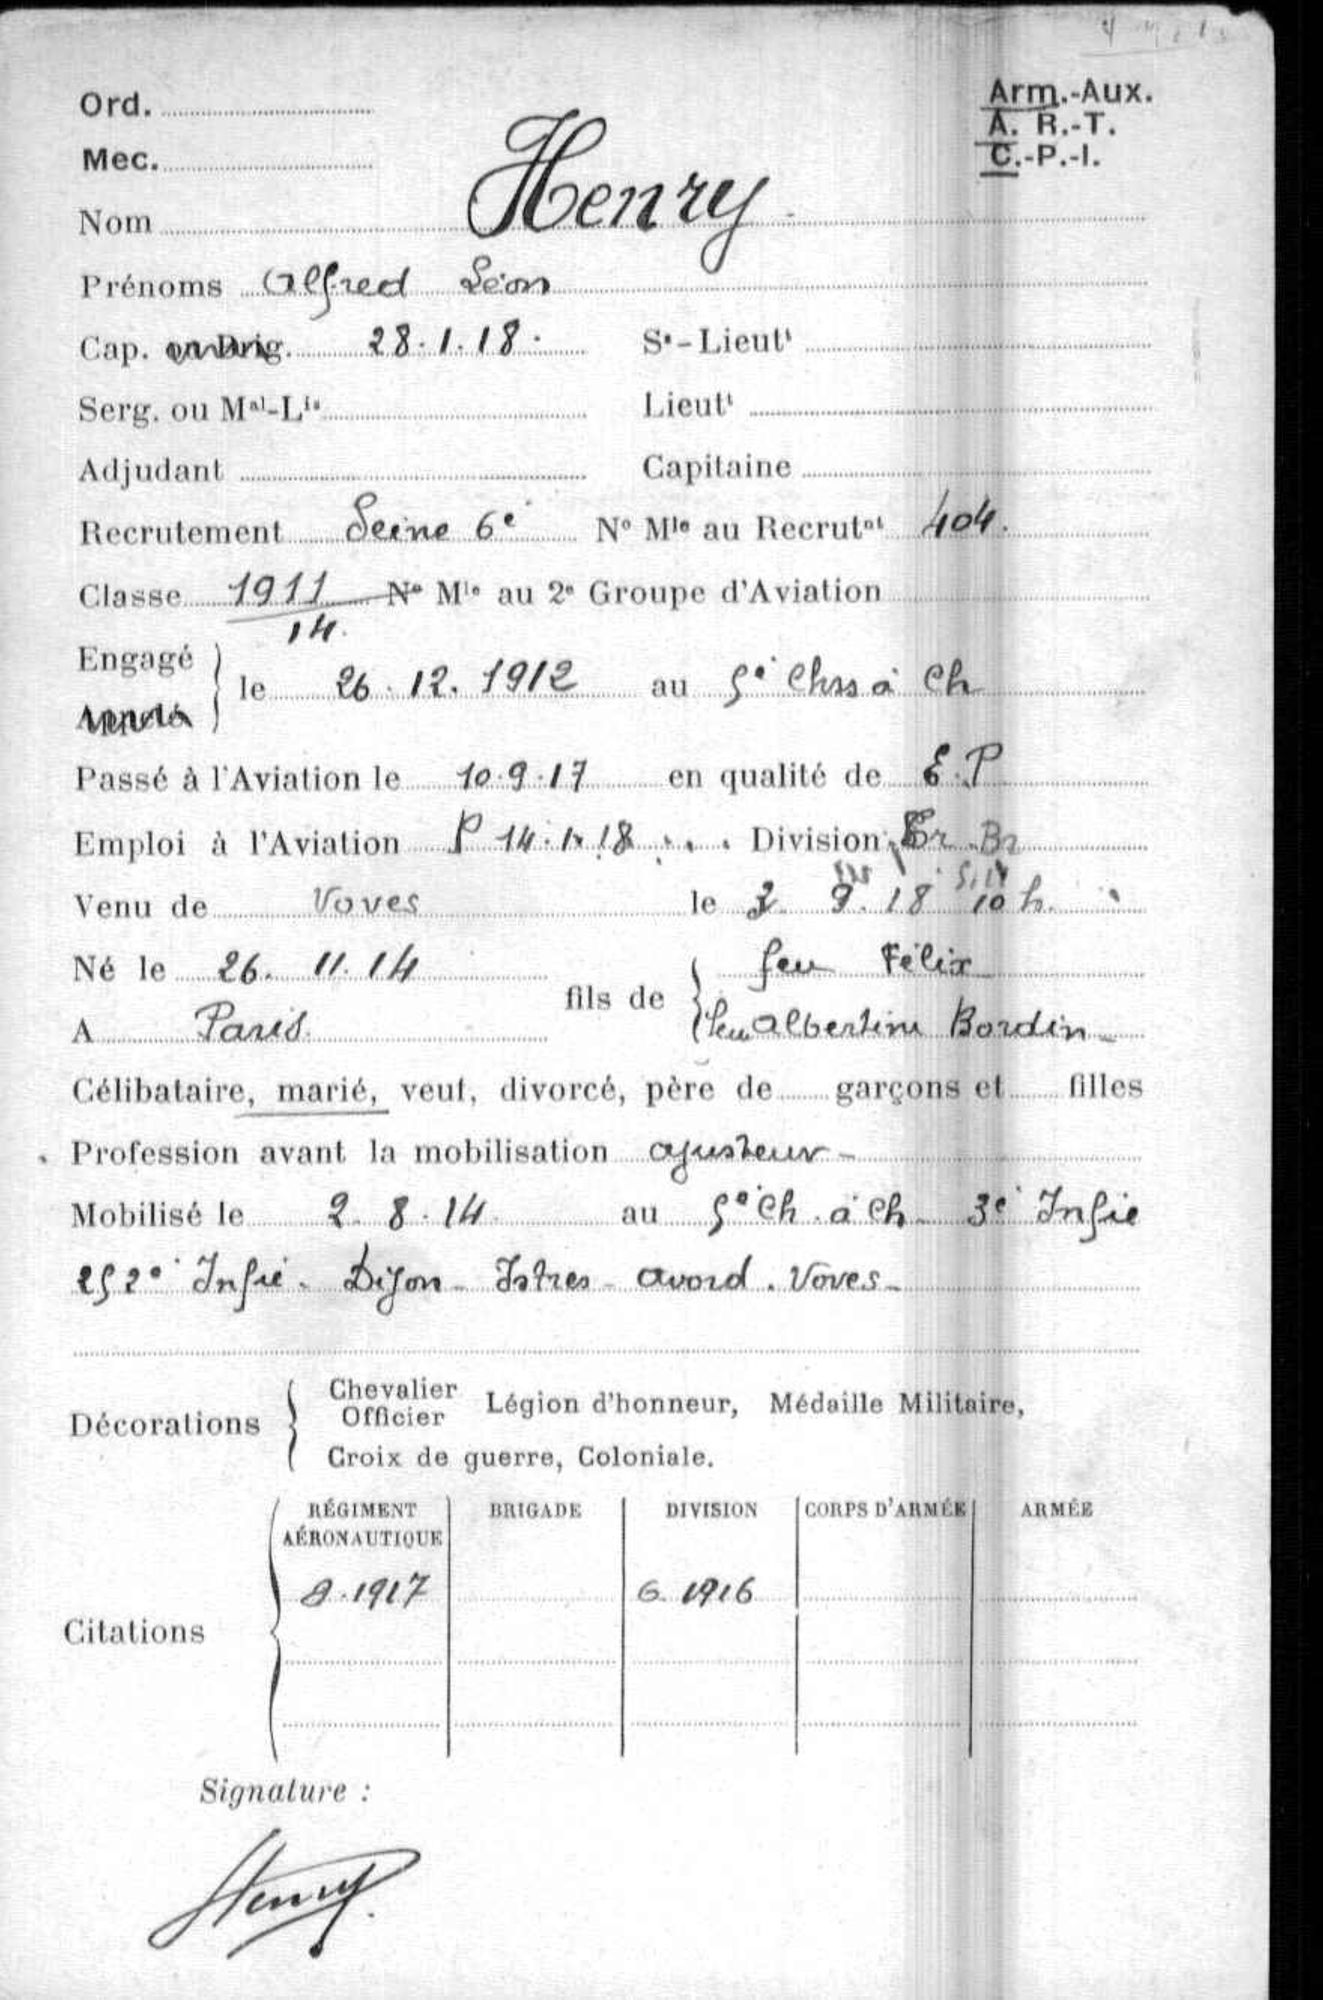 Arm.-Aux.
Ord.
A. R.-T.
Mec.
C.-P.-I.
Nom Henry
Prénoms Alfred Léon
Cap. 28.1.18. Ss-Lieutt
Serg. ou Mal-Lis Lieutt
Adjudant Capitaine
Recrutement Seine 6e No Mle au Recrutnt 404.
Classe 1911 No Mle au 2e Groupe d'Aviation
14.
Engagé
le 26.12.1912 au 5e Chss à Ch
Passé à l'Aviation le 10.9.17 en qualité de E.P
Emploi à l'Aviation P 14.1.18 Division Br
Venu de Voves le 9.18 10 h.
Né le 26.11.14 fils de feu Félix
A Paris. feu Albertine Bordin
Célibataire, marié, veuf, divorcé, père de garçons et filles
Profession avant la mobilisation ajusteur
Mobilisé le 2.8.14 au 5e Ch. à Ch 3e Infie
252e Infie. Dijon - Istres - Avord. Voves -
Décorations Chevalier Officier Légion d'honneur, Médaille Militaire,
Croix de guerre, Coloniale.
RÉGIMENT AÉRONAUTIQUE BRIGADE DIVISION CORPS D'ARMÉE ARMÉE
8.1917 6.1916
Citations
Signature :
Henry